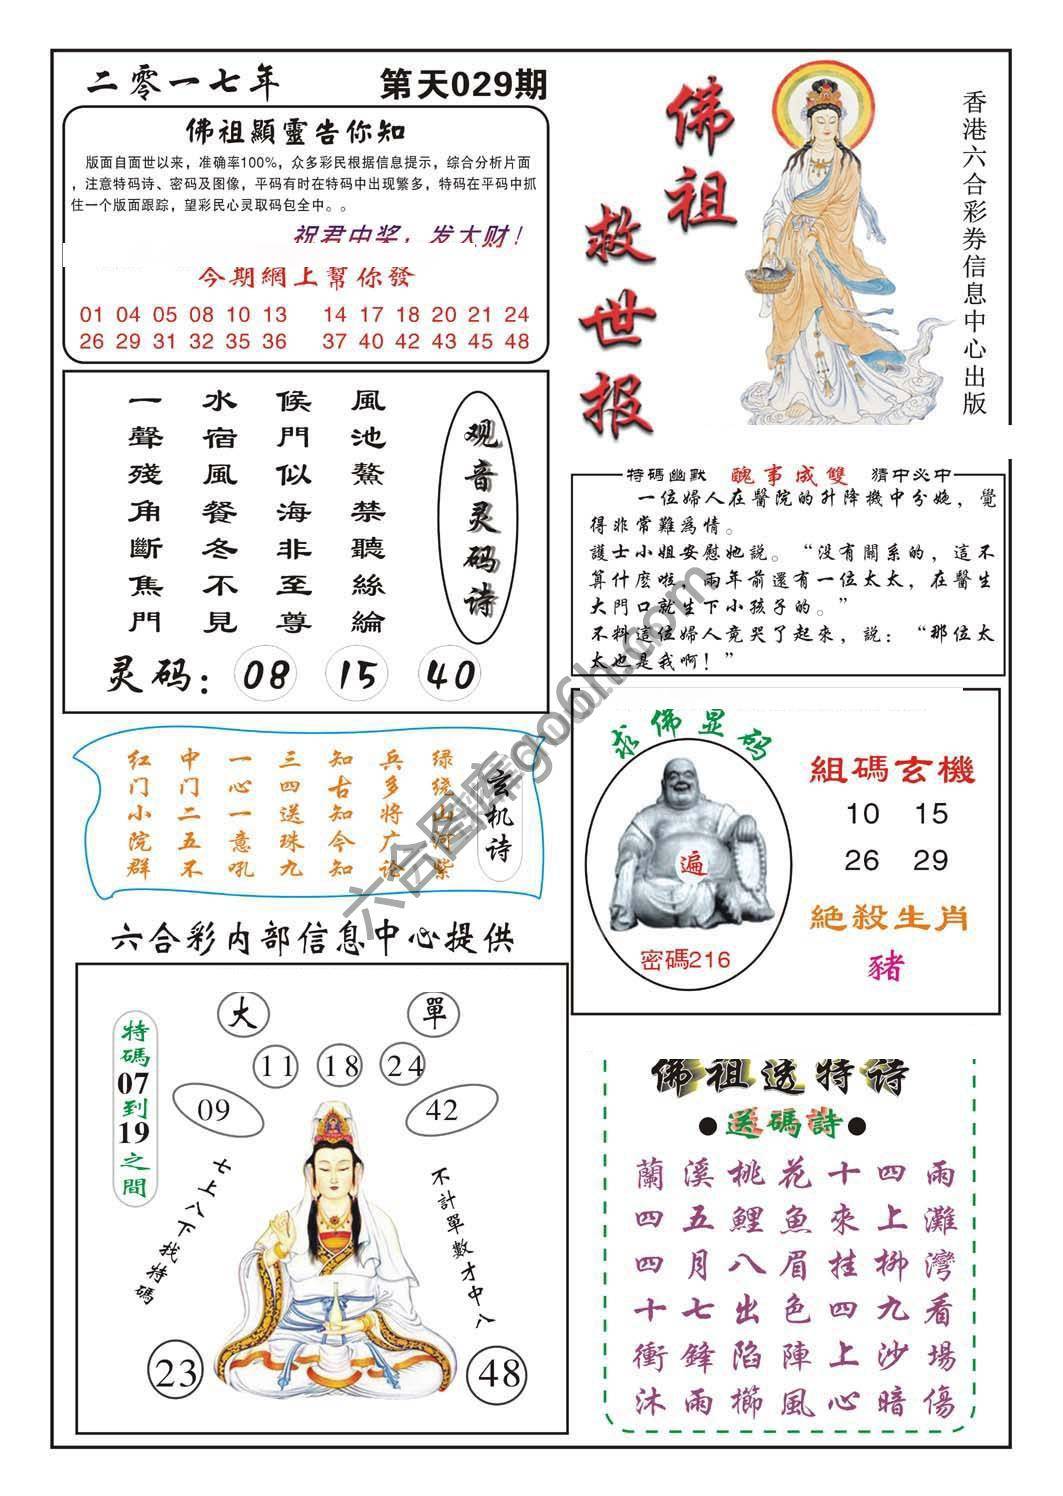 二零一七年
第天029期
佛祖顯靈告你知
版面自面世以来，准确率100%，众多彩民根据信息提示，综合分析片面
，注意特码诗、密码及图像，平码有时在特码中出现繁多，特码在平码中抓
住一个版面跟踪，望彩民心灵取码包全中。。
祝君中奖，发大财！
今期網上幫你發
01 04 05 08 10 13 14 17 18 20 21 24
26 29 31 32 35 36 37 40 42 43 45 48
佛祖救世报
香港六合彩券信息中心出版
观音灵码诗
風池鰲禁聽絲綸
侯門似海非至尊
水宿風餐冬不見
一聲殘角斷焦門
灵码：08 15 40
特碼幽默 醜事成雙 猜中必中
一位婦人在醫院的升降機中分娩，覺
得非常難為情。
護士小姐安慰她説。“没有關系的，這不
算什麽啦，兩年前還有一位太太，在醫生
大門口就生下小孩子的。”
不料這位婦人竟哭了起來，説：“那位太
太也是我啊！”
玄机诗
绿绕山河紫
兵多将广论
知古知今知
三四送珠九
一心一意吼
中门二五不
红门小院群
求佛显码
遍
密碼216
組碼玄機
10 15
26 29
絕殺生肖
豬
六合彩内部信息中心提供
大
單
11 18 24
09
42
特碼07到19之間
七上八下找特碼
不計單數才中八
23
48
佛祖透特诗
●送碼詩●
蘭溪桃花十四雨
四五鯉魚來上灘
四月八眉挂柳灣
十七出色四九看
衝鋒陷陣上沙場
沐雨櫛風心暗傷
六合图库go6h.com